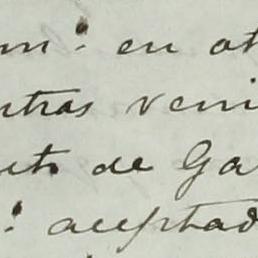 en ot
ntras veni
de Ga
aceptad